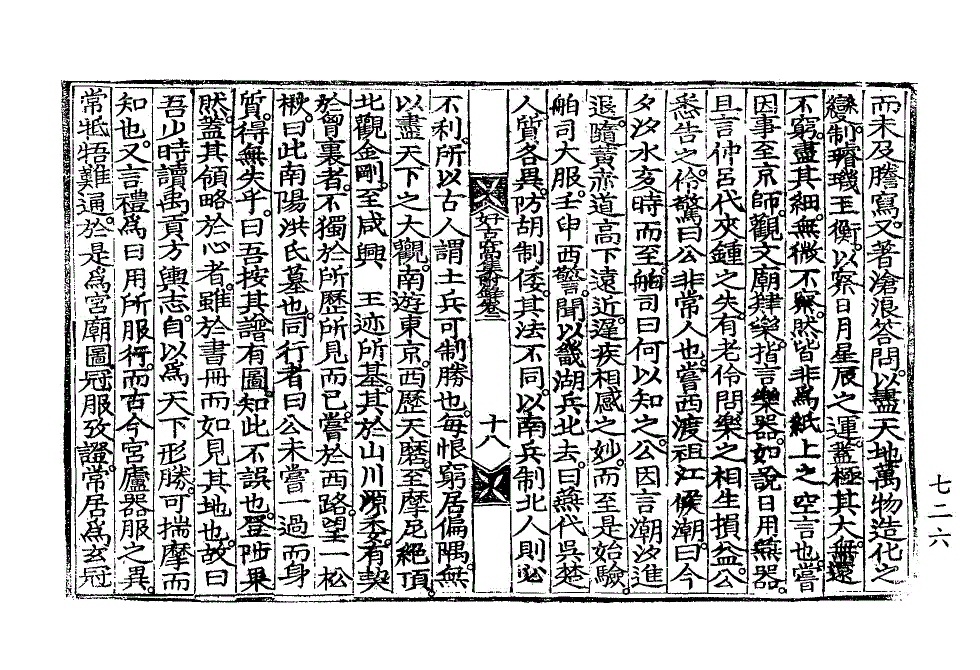 而未及謄寫又著滄浪答問以盡天地萬物造化之
變制璿璣玉衡以察日月星辰之運蓋極其大無遠
不窮盡其細無微不察然皆非爲紙上之空言也嘗
因事至京師觀文廟肄樂指言樂器如說日用無器
且言仲呂代夾鍾之失有老伶問樂之相生損益公
悉告之伶驚曰公非常人也嘗西渡祖江候潮曰今
夕汐水亥時而至舶司曰何以知之公因言潮汐進
退隨黃赤道高下遠近遲疾相感之妙而至是始驗
舶司大服壬申西警聞以畿湖兵北去曰燕代吳楚
人質各異防胡制倭其法不同以南兵制北人則必
好古窩集附錄卷二
十八
不利所以古人謂土兵可制勝也每恨窮居偏隅無
以盡天下之大觀南遊東京西歷天磨至摩尼絕頂
北觀金剛至咸興 王迹所基其於山川源委有契
於曾裏者不獨於所歷所見而已嘗於西路望一松
楸曰此南陽洪氏墓也同行者曰公未嘗一過而身
質得無失乎曰吾按其譜有圖知此不誤也登陟果
然蓋其領略於心者雖於書冊而如見其地也故曰
吾少時讀禹貢方輿志自以爲天下形勝可揣摩而
知也又言禮爲日用所服行而古今宮廬器服之異
常牴牾難通於是爲宮廟圖冠服攷證常居爲玄冠
七二六